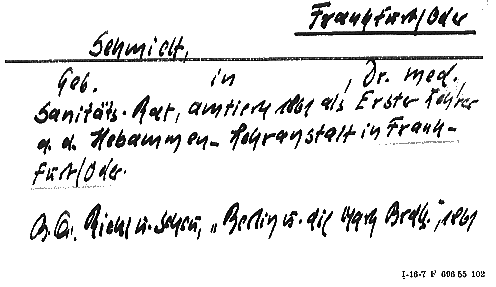 Frankfurt/Oder
Schmidt,
Geb. in , Dr. med.,
Sanitäts-Rat, amtiert 1861 als Erster Lehrer
a. d. Hebammen-Lehranstalt in Frank-
furt/Oder.
B.Qu. Riehl u. Scheu, „Berlin u. die Mark Brdbg.", 1861
I-16-7 F 696 55 102